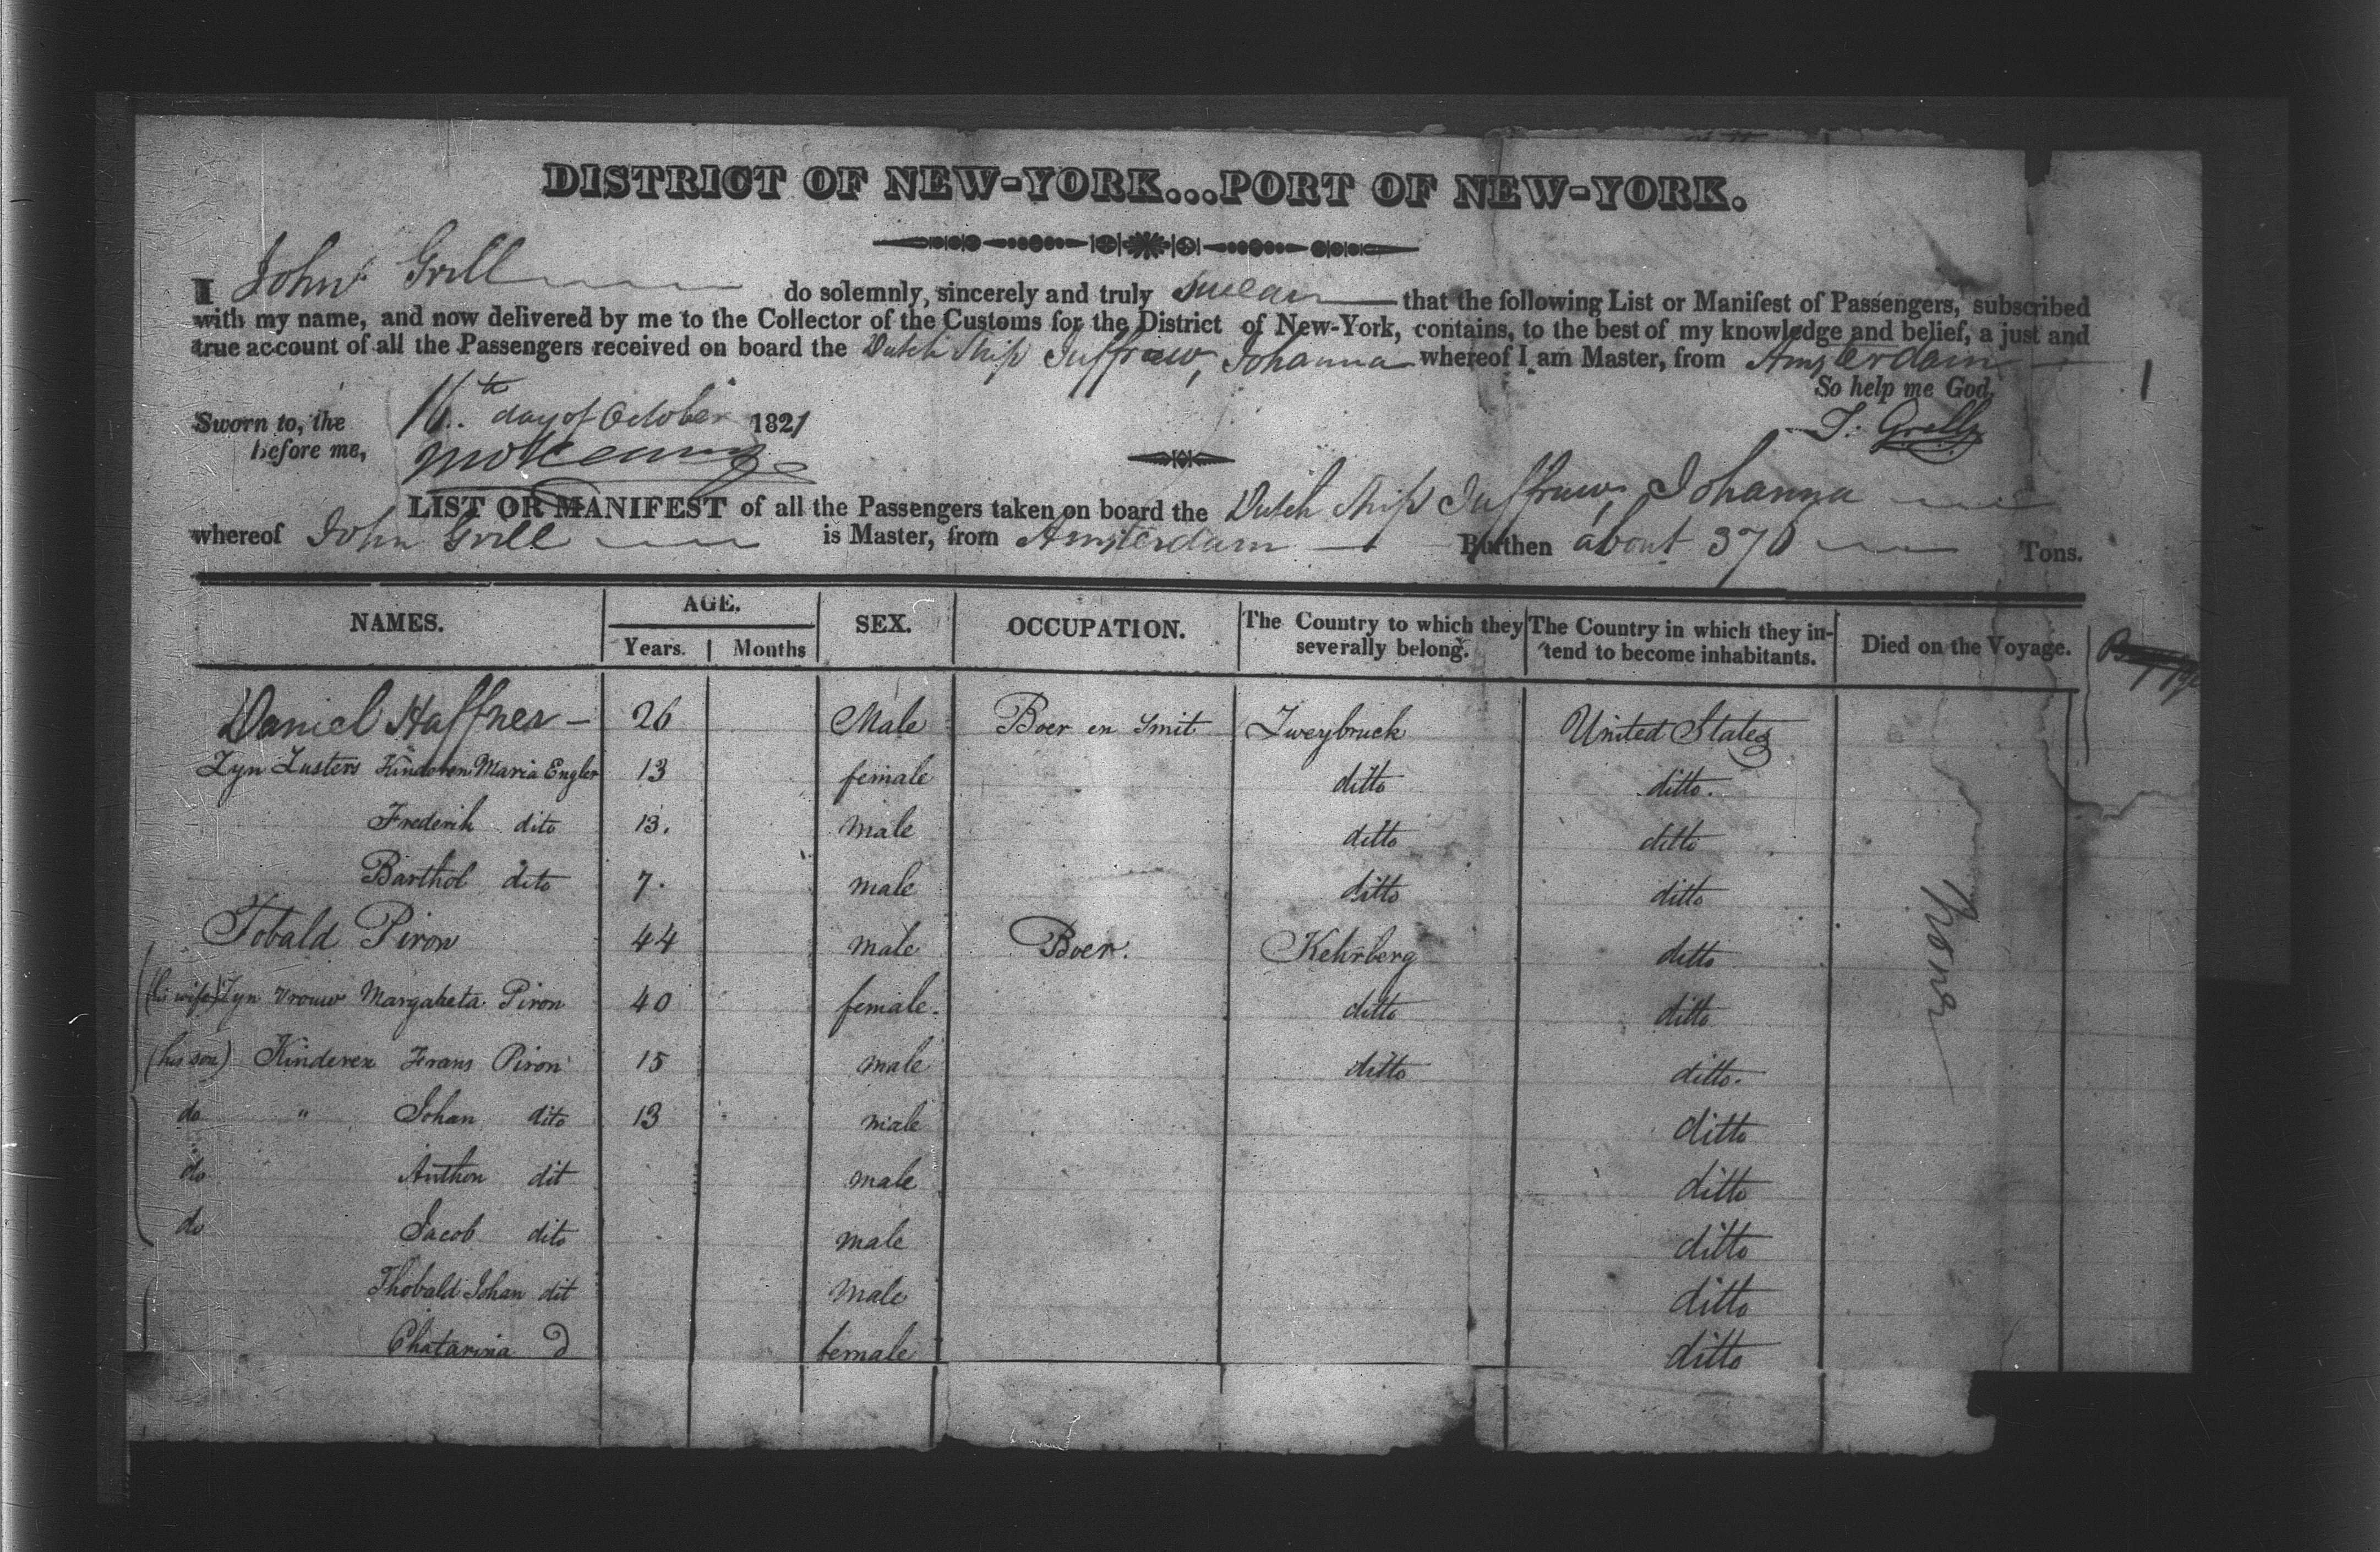 DISTRICT OF NEW-YORK...PORT OF NEW-YORK.
I John Grill do solemnly, sincerely and truly swear that the following List or Manifest of Passengers, subscribed
with my name, and now delivered by me to the Collector of the Customs for the District of New-York, contains, to the best of my knowledge and belief, a just and
true account of all the Passengers received on board the Dutch Ship Juffrow, Johanna whereof I am Master, from Amsterdam
So help me God,
Sworn to, the 16th day of October 1821
J: Grill
before me,
LIST OR MANIFEST of all the Passengers taken on board the Dutch Ship Juffrow, Johanna
whereof John Grill is Master, from Amsterdam Burthen about 370 Tons.
NAMES. AGE. SEX. OCCUPATION. The Country to which they severally belong. The Country in which they intend to become inhabitants. Died on the Voyage.
Years. Months
Daniel Haffner - 26 Male Boer en Smit Zweybruck United States
Zyn Zusters Kinderen Maria Engler 13 female ditto ditto.
Frederik dito 13. male ditto ditto
Barthol dito 7. male ditto ditto
None
Tobald Piron 44 male Boer. Kehrberg ditto
(his wife) Zyn Vrouw Margaheta Piron 40 female. ditto ditto
(his son) Kinderen Frans Piron 15 male ditto ditto.
do " Johan dito 13 male ditto
do Anthon dit male ditto
do Jacob dito male ditto
Thobald Johan dit Male ditto
Chatarina d female ditto